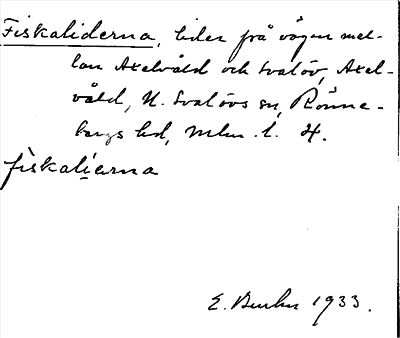 Fiskaliderna, lider på vägen mel-
lan Axelvåld och Svalöv, Axel-
våld, N. Svalövs sn, Rönne-
bergs hd, Mlm. l. H.
fiskalierna
E. 1933.